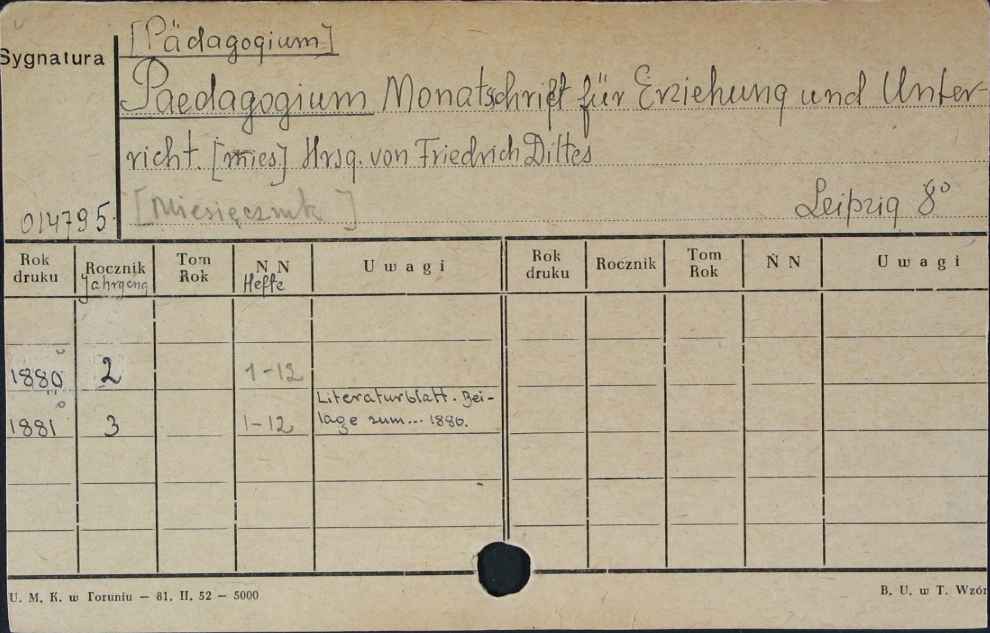 [Pädagogium]
Sygnatura
Paedagogium Monatschrift für Erziehung und Unter-
richt. [mies] Hrsg. von Friedrich Dittes
[Miesięcznik]
Leipzig 8°
014795.
Rok druku Rocznik Jahrgang Tom Rok N N Hefte Uwagi Rok druku Rocznik Tom Rok N N Uwagi
1880 2 1-12
Literaturblatt. Bei-
1881 3 1-12 lage zum... 1880.
U. M. K. w Toruniu — 81. II. 52 — 5000
B. U. w T. Wzór